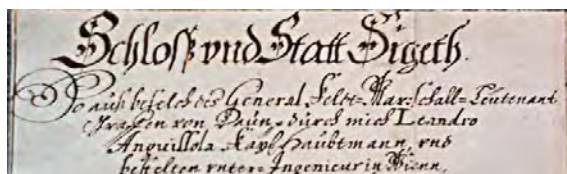 Schloß vnd Statt Sigeth.
So auß befelch des General Feldt=Marschall=Leutenant
Graffen von Daun, durch mich Leandro
Anguissola Kayl: Haubtmann, vnd
bestelten vnter=Ingenieur in Wienn,